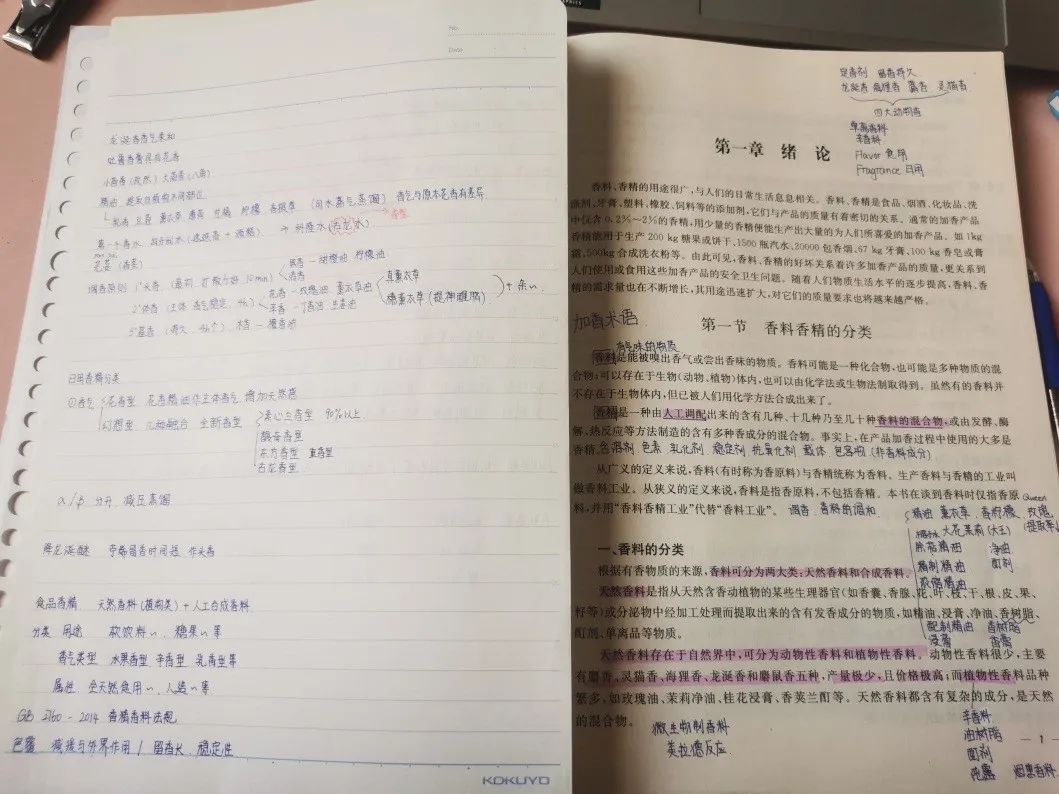 No.
Date
龙涎香香气柔和
吐鲁香膏具有花香
小茴香(孜然) 大茴香(八角)
精油 提取自植物不同部位
玫瑰 豆蔻 薰衣草 檀香 甘橘 柠檬 香根草 (用水蒸气蒸馏) 香气与原本花香有差异
第一个香水 匈牙利水(迷迭香+酒精) → 纠隆水(古龙水)
花茶(香茶)
果香 — 甜橙油 柠檬油
调香原则 1°头香 (最前 扩散力好 10min)
清香
2°体香 (主体 香气稳定 4h)
花香 — 玫瑰油 薰衣草油
真薰衣草
穗薰衣草(提神醒脑)
+杂
辛香 — 丁香油 豆蔻油
3°基香 (持久 4h↑) 木香 — 檀香油
日用香精分类
①香气
花香型 花香精油作主体香气 增加天然感
幻想型 几种融合 全新香型
素心兰香型 90%以上
馥奇香型
东方香型 重香型
古龙香型
α/β 分开 减压蒸馏
降龙涎醚 导赂留香时间短 作头香
食品香精 天然香料(植物类)+人工合成香料
分类 用途 软饮料~ 糖果~等
香气类型 水果香型 辛香型 乳香型等
属性 全天然食用~ 人造~等
GB 2760-2014 香精香料法规
包覆 减缓与外界作用/留香长 稳定性
KOKUYO
定香剂 留香持久
龙涎香 海狸香 麝香 灵猫香
四大动物香
单离香料
辛香料
Flavor 食用
Fragrance 日用
第一章 绪 论
香料、香精的用途很广,与人们的日常生活息息相关。香料、香精是食品、烟酒、化妆品、洗
涤剂、牙膏、塑料、橡胶、饲料等的添加剂,它们与产品的质量有着密切的关系。通常的加香产品
中仅含0.2%~2%的香精,用少量的香精便能生产出大量的为人们所喜爱的加香产品。如1kg
香精能用于生产200 kg糖果或饼干、1500瓶汽水、20000包香烟、67 kg牙膏、100 kg香皂或膏
霜、500kg合成洗衣粉等。由此可见,香料、香精的好坏关系着许多加香产品的质量,更关系到
人们使用或食用这些加香产品的安全卫生问题。随着人们物质生活水平的逐步提高,香料、香
精的需求量也在不断增长,其用途迅速扩大,对它们的质量要求也将越来越严格。
加香术语
第一节 香料香精的分类
有气味的物质
香料是能被嗅出香气或尝出香味的物质。香料可能是一种化合物,也可能是多种物质的混
合物,可以存在于生物(动物、植物)体内,也可以由化学法或生物法制取得到。虽然有的香料并
不存在于生物体内,但已被人们用化学方法合成出来了。
香精是一种由人工调配出来的含有几种、十几种乃至几十种香料的混合物,或由发酵、酶
解、热反应等方法制造的含有多种香成分的混合物。事实上,在产品加香过程中使用的大多是
香精。含溶剂、色素、乳化剂、稳定剂 抗氧化剂 载体 包容物(非香料成分)
从广义的定义来说,香料(有时称为香原料)与香精统称为香料。生产香料与香精的工业叫
做香料工业。从狭义的定义来说,香料是指香原料,不包括香精。本书在谈到香料时仅指香原
料,并用“香料香精工业”代替“香料工业”。
调香:香料的调和
Queen
精油 薰衣草 香柠檬 玫瑰
大花茉莉(大王) (提取率↓)
除萜精油 净油
精制精油 酊剂
浓缩精油
配制精油 香树脂
浸膏 香膏
一、香料的分类
根据有香物质的来源,香料可分为两大类:天然香料和合成香料。
天然香料是指从天然含香动植物的某些生理器官(如香囊、香腺、花、叶、枝、干、根、皮、果、
籽等)或分泌物中经加工处理而提取出来的含有发香成分的物质,如精油、浸膏、净油、香树脂、
酊剂、单离品等物质。
天然香料存在于自然界中,可分为动物性香料和植物性香料。动物性香料很少,主要
有麝香、灵猫香、海狸香、龙涎香和麝鼠香五种,产量极少,且价格极高;而植物性香料品种
繁多,如玫瑰油、茉莉净油、桂花浸膏、香荚兰酊等。天然香料都含有复杂的成分,是天然
的混合物。
微生物制香料
美拉德反应
辛香料
油树脂
酊剂
烟熏香料
— 1